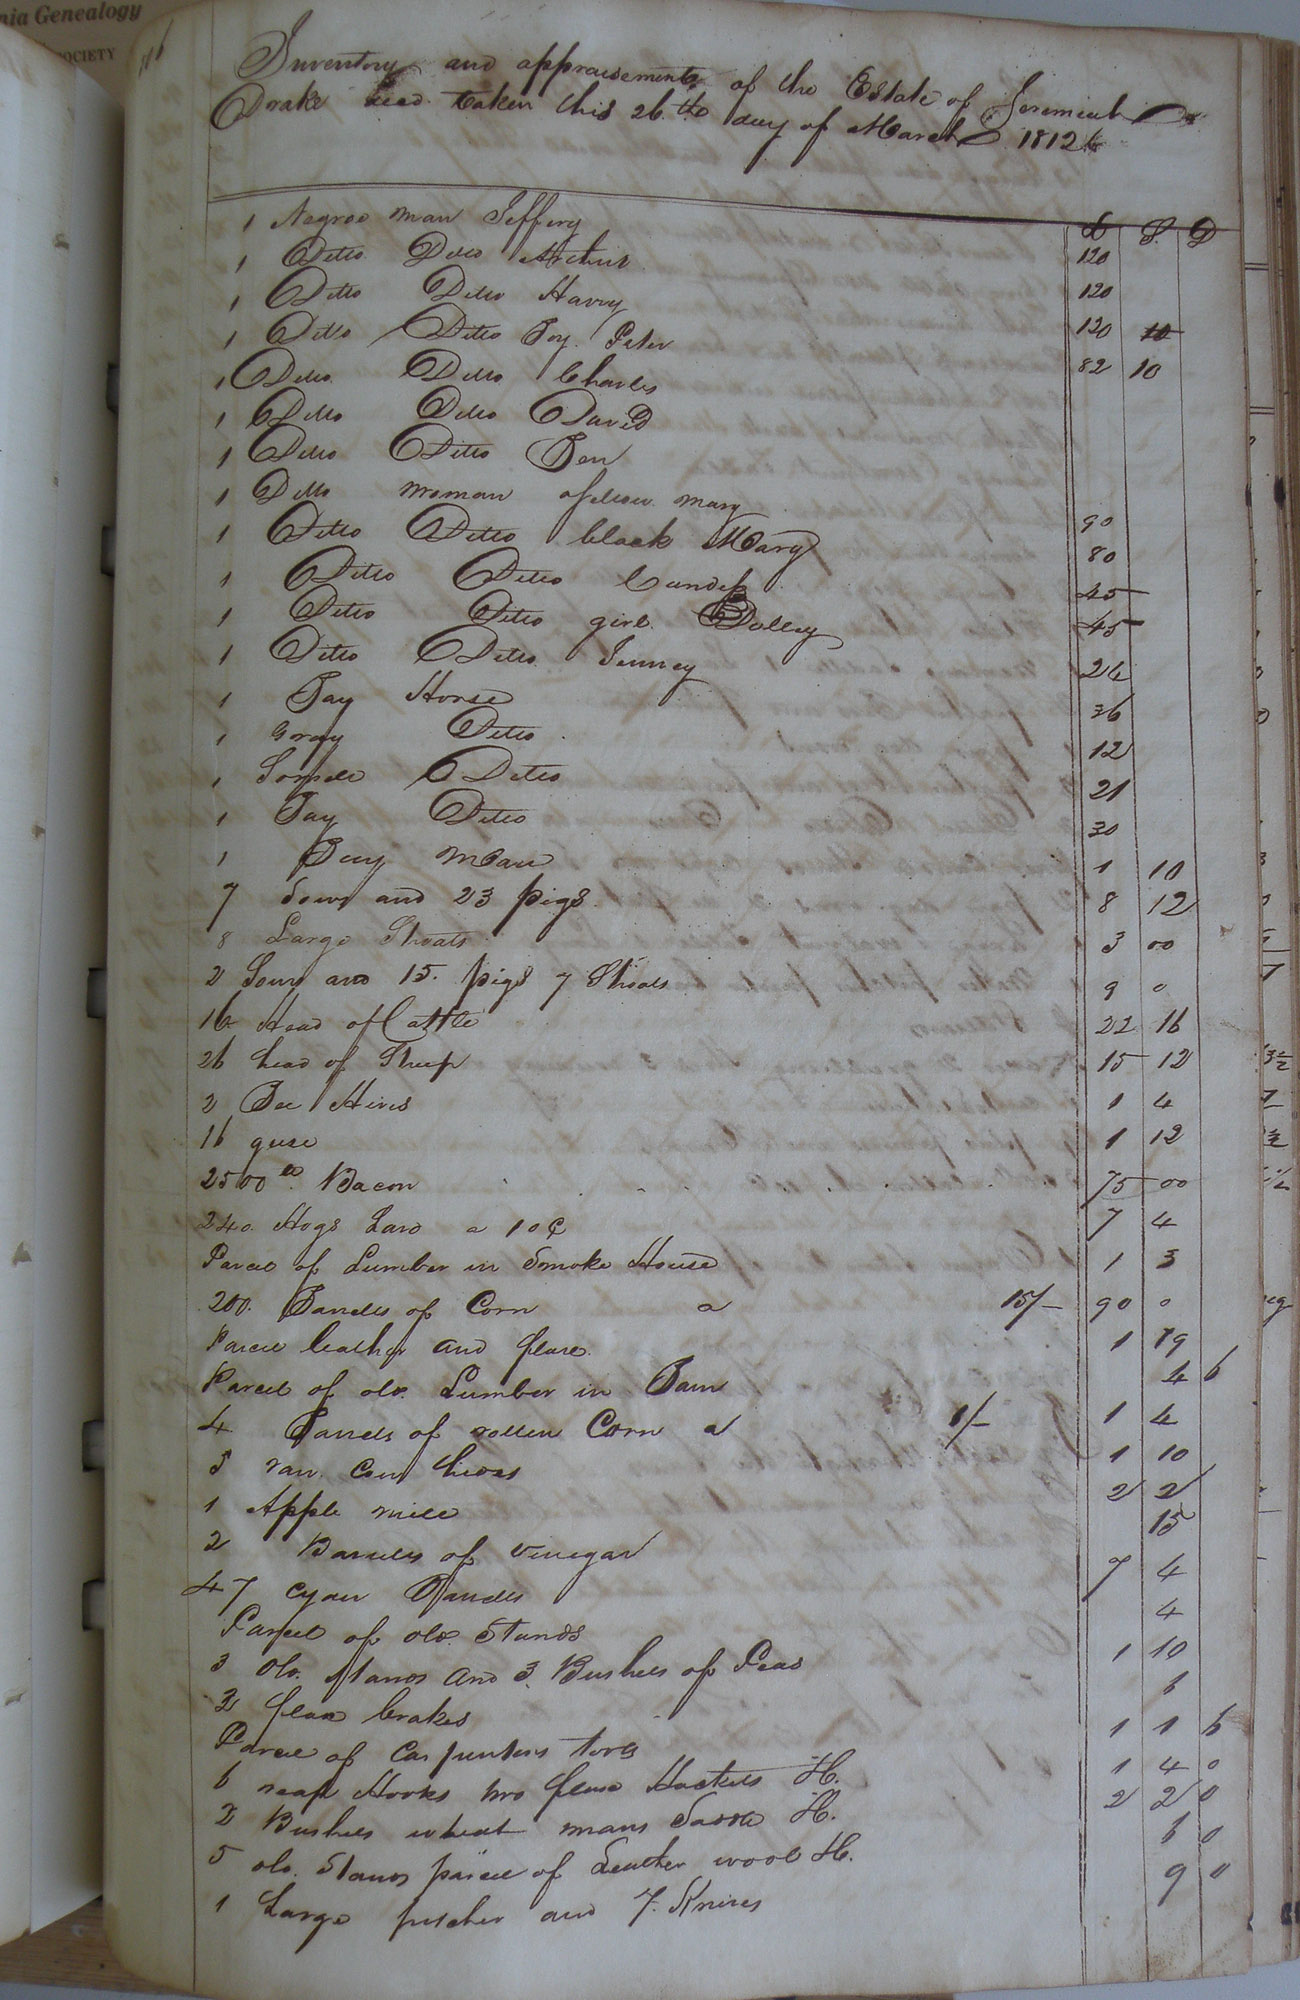 nia Genealogy
SOCIETY
Inventory and appraisement of the Estate of Jeremiah
Drake Decd. taken this 26th day of March 1812
£ S. D
1 Negroe man Jeffery 120
1 Ditto Ditto Archer 120
1 Ditto Ditto Harry 120 10
1 Ditto Ditto Boy Peter 82 10
1 Ditto Ditto Charles
1 Ditto Ditto David
1 Ditto Ditto Ben
1 Ditto woman mary 90
1 Ditto Ditto black Mary 80
1 Ditto Ditto 45
1 Ditto Ditto girl Dolley 45
1 Ditto Ditto Jenney 24
1 Bay Horse 36
1 Gray Ditto 12
1 Sorrell Ditto 21
1 Bay Ditto 30
1 Bay Mare 1 10
7 Sows and 23 pigs 8 12
8 Large Shoats 3 00
2 Sows and 15 pigs 7 Shoats 9 0
16 Head of Cattle 22 16
26 head of Sheep 15 12
2 Bee Hives 1 4
16 guse 1 12
2500 lb Bacon 75 00
240 Hogs Lard a 10¢ 7 4
Parcel of Lumber in Smoke House 1 3
200 Barrels of Corn a 15/- 90 0
Parcel leather and flax 1 19
Parcel of old Lumber in Barn 4 6
4 Barrels of rotten Corn a 1/- 1 4
5 raw Cow hides 1 10
1 Apple mill 2 2
2 Barrells of vinegar 15
47 Cyder Barrels 7 4
Parcel of old Stands 4
3 old Stands and 3 Bushels of Peas 1 10
2 flax brakes 6
Parcel of Carpenters tools 1 1 6
6 reap Hooks two flax Hackels &c. 1 4 0
2 Bushels wheat mans Saddle &c. 2 2 0
5 old Stands parcel of Leather wool &c. 6 0
1 Large pitcher and 7 Knives 9 0